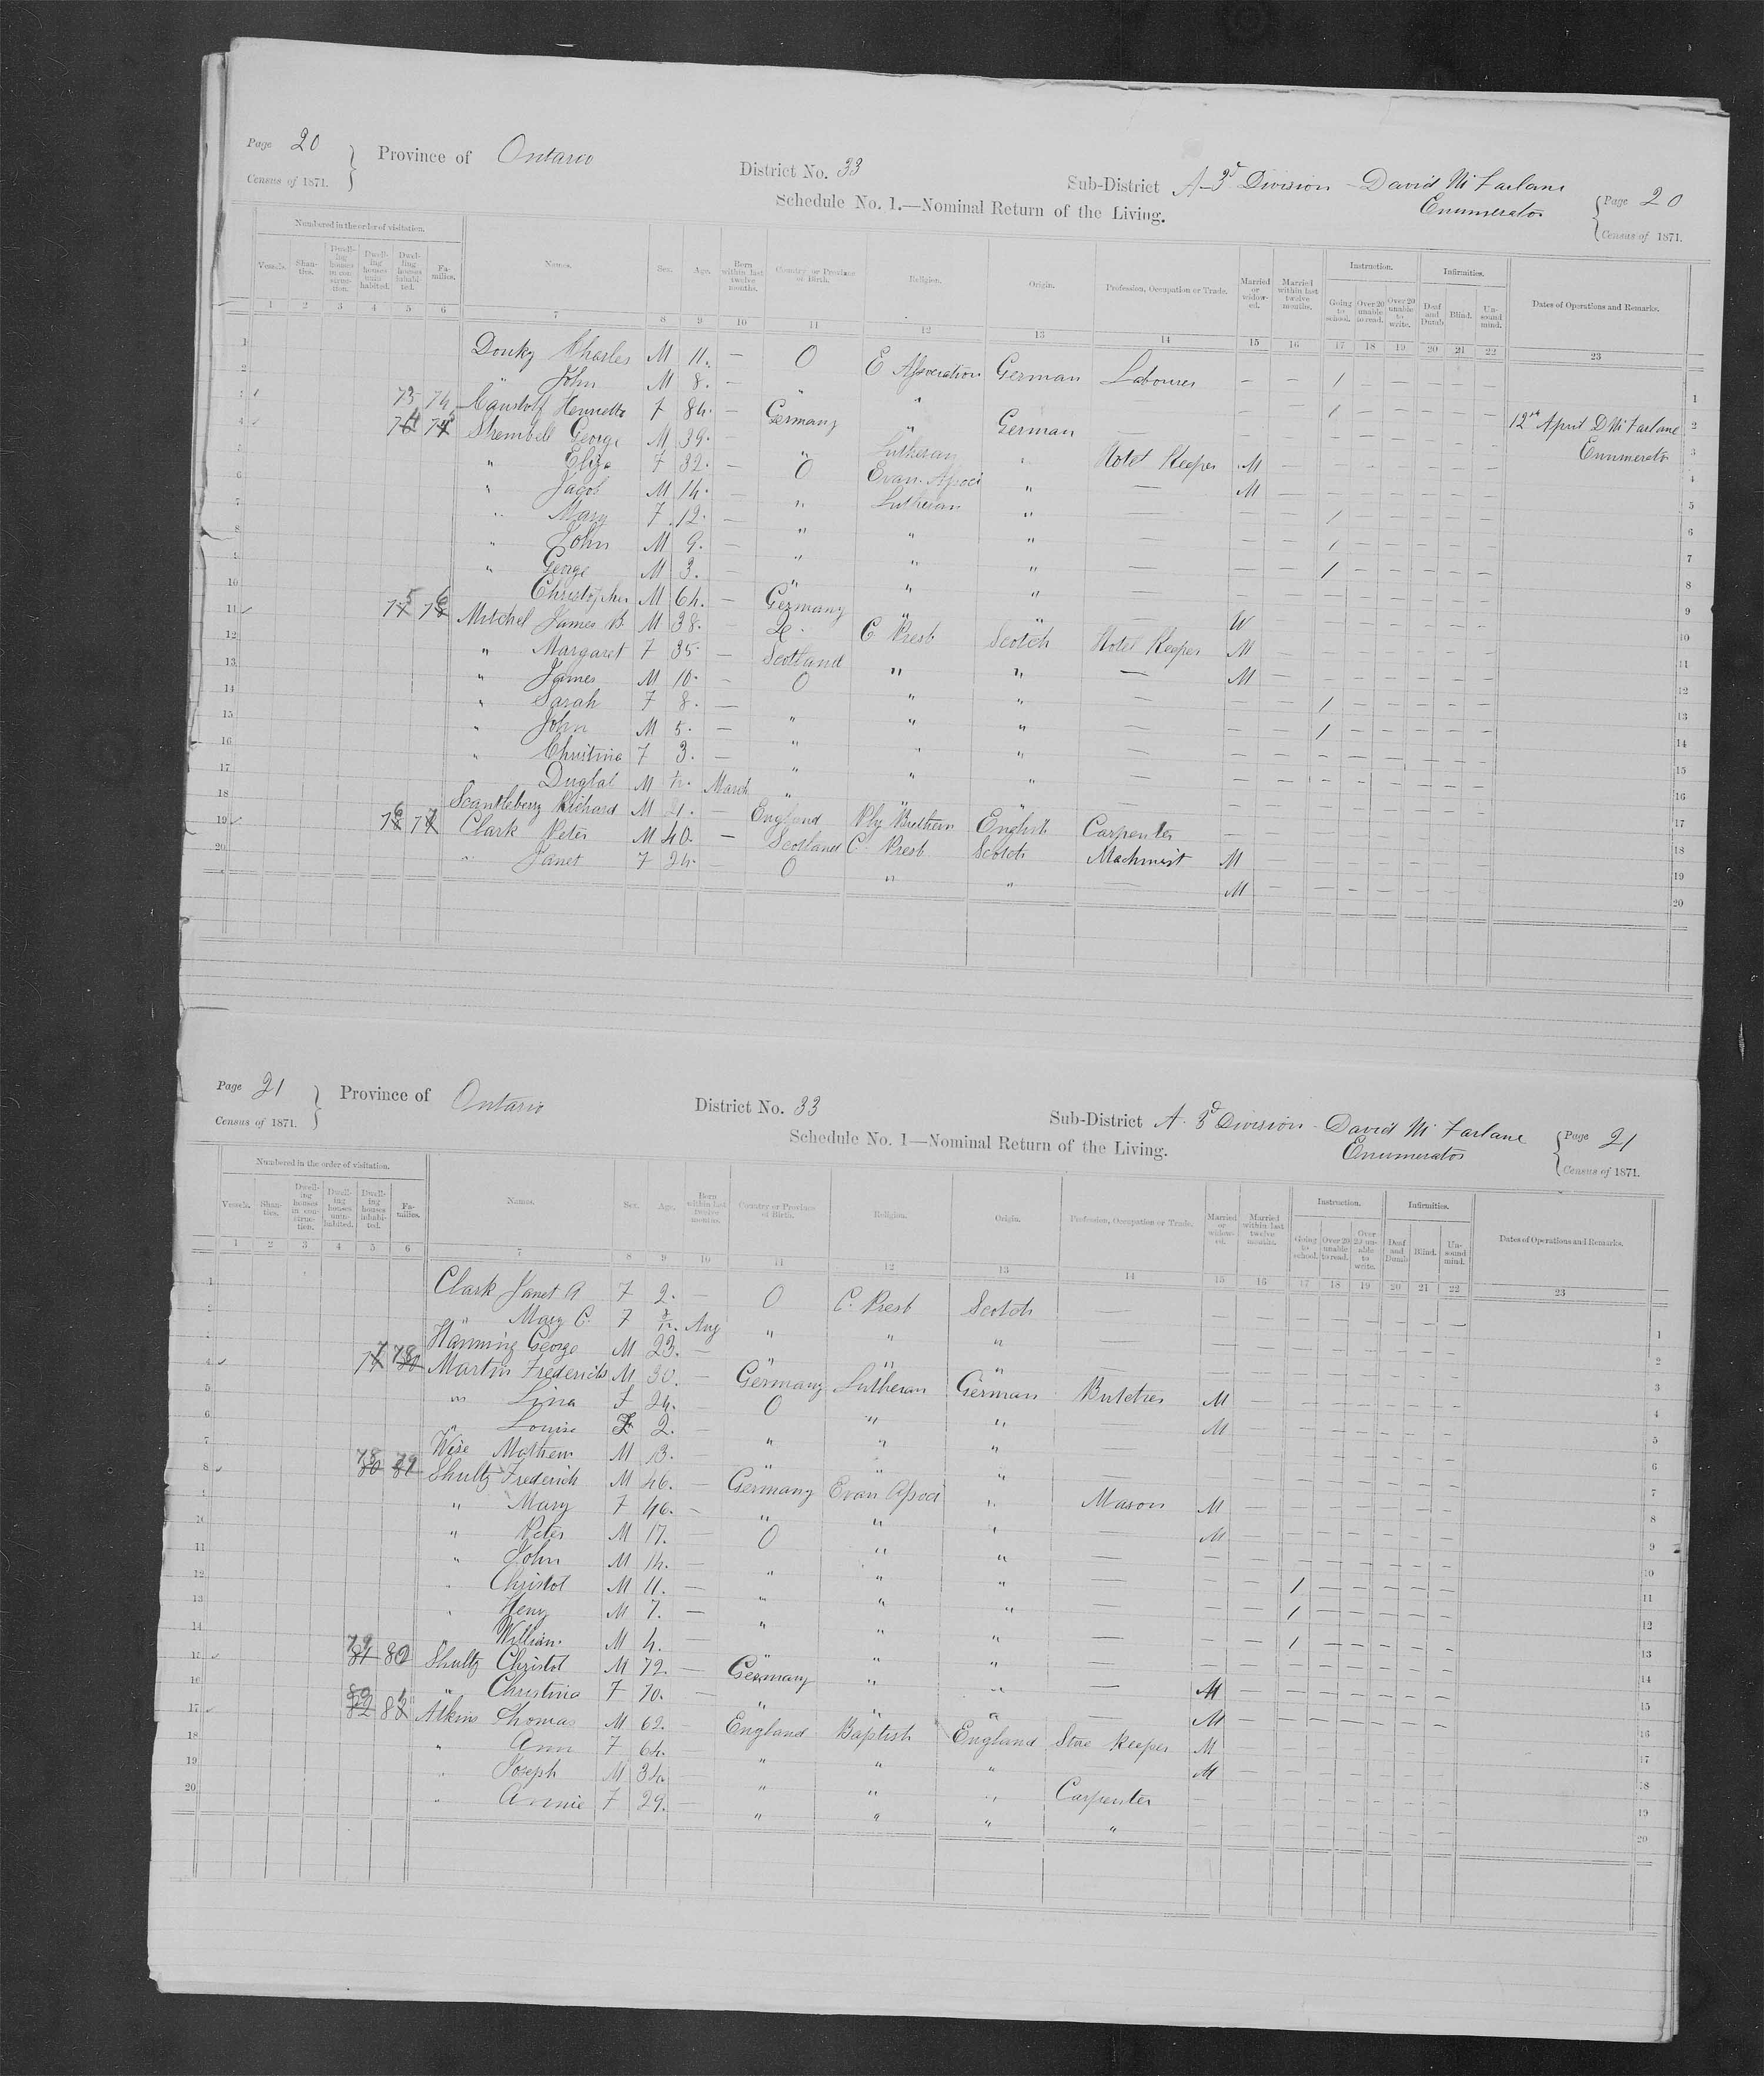 Page 20 Province of Ontario District No. 33 Sub-District A-3d Division - David McFarlane Page 20
Census of 1871. Schedule No. 1.—Nominal Return of the Living. Enumerator Census of 1871.
Numbered in the order of visitation. Names. Sex. Age. Born within last twelve months. Country or Province of Birth. Religion. Origin. Profession, Occupation or Trade. Married or widowed. Married within last twelve months. Instruction. Infirmities. Dates of Operations and Remarks.
Vessels. Shanties. Dwelling houses in construction. Dwelling houses uninhabited. Dwelling houses inhabited. Families. Going to school. Over 20 unable to read. Over 20 unable to write. Deaf and Dumb. Blind. Unsound mind.
1 2 3 4 5 6 7 8 9 10 11 12 13 14 15 16 17 18 19 20 21 22 23
1 Charles M 11. — O E Assveration German Labourer — — 1 — — — — — 1
2 " John M 8. — " " — — 1 — — — — — 12th April D McFarlane 2
3 73 74 Henrietta F 84. — Germany " German — — — — — — — — Enumerator 3
4 George M 39. — " Lutheran " Hotel Keeper M — — — — — — — 4
5 " Eliza F 32. — O Evan. Associ " — M — — — — — — — 5
6 " Jacob M 14. — " Lutheran " — — — 1 — — — — — 6
7 " Mary F 12. — " " " — — — 1 — — — — — 7
8 " John M 9. — " " " — — — 1 — — — — — 8
9 " George M 3. — " " " — — — — — — — — — 9
10 Christopher M 64. — Germany " " — W — — — — — — — 10
11 75 76 Mitchel James B M 38. — Q. C Presb Scotch Hotel Keeper M — — — — — — — 11
12 " Margaret F 35 — Scotland " " — M — — — — — — — 12
13 " James M 10. — O " " — — — 1 — — — — — 13
14 " Sarah F 8. — " " " — — — 1 — — — — — 14
15 " John M 5. — " " " — — — — — — — — — 15
16 " Christina F 3. — " " " — — — — — — — — — 16
17 Duglal M March " " " 17
18 Scantlebury Richard M England Ply Brethern English Carpenter — — — — — — — — 18
19 76 Clark Peter M 40. — Scotland C. Presb Scotch Machinist M — — — — — — — 19
20 " Janet F 24. — O " " — M — — — — — — — 20
Page 21 Province of Ontario District No. 33 Sub-District A. 3d Division - David McFarlane Page 21
Census of 1871. Schedule No. 1—Nominal Return of the Living. Enumerator Census of 1871.
Numbered in the order of visitation. Names. Sex. Age. Born within last twelve months. Country or Province of Birth. Religion. Origin. Profession, Occupation or Trade. Married or widowed. Married within last twelve months. Instruction. Infirmities. Dates of Operations and Remarks.
Vessels. Shanties. Dwelling houses in construction. Dwelling houses uninhabited. Dwelling houses inhabited. Families. Going to school. Over 20 unable to read. Over 20 unable to write. Deaf and Dumb. Blind. Unsound mind.
1 2 3 4 5 6 7 8 9 10 11 12 13 14 15 16 17 18 19 20 21 22 23
1 Clark Janet A F 2. — O C. Presb Scotch — — — — — — — — — 1
2 " Mary C. F Aug " " " — — — — — — — — — 2
3 Hanning George M 23. — " " " — — — — — — — — 3
4 77 78 Martin Frederick M 30. — Germany Lutheran German Butcher M — — — — — — — 4
5 " Lina F 24. — O " " M — — — — — — — 5
6 " Louise F 2. — " " " — — — — — — — — 6
7 Wise Mathew M 13. — " " " — — — — — — — — 7
8 78 79 Shultz Frederick M 46. — Germany Evan Associ " Mason M — — — — — — — 8
9 " Mary F 46. — " " " — M — — — — — — — 9
10 " Peter M 17. O " " — — — — — — — — — 10
11 " John M 14. — " " " — — — 1 — — — — — 11
12 " Christot M 11. — " " " — — — 1 — — — — — 12
13 " Heny M 7. — " " " — — — 1 — — — — — 13
14 William M 4. — " " " — — — — — — — — — 14
15 79 80 Shultz Christot M 72. — Germany " " — M — — — — — — — 15
16 " Christina F 70. — " " " — M — — — — — — — 16
17 80 81 Atkins Thomas M 62. — England Baptist England Store Keeper M — — — — — — — 17
18 " Ann F 64. — " " " M — — — — — — — 18
19 " Joseph M 34 — " " " Carpenter — — — — — — — — 19
20 " Annie F 29. — " " " " — — — — — — — — 20